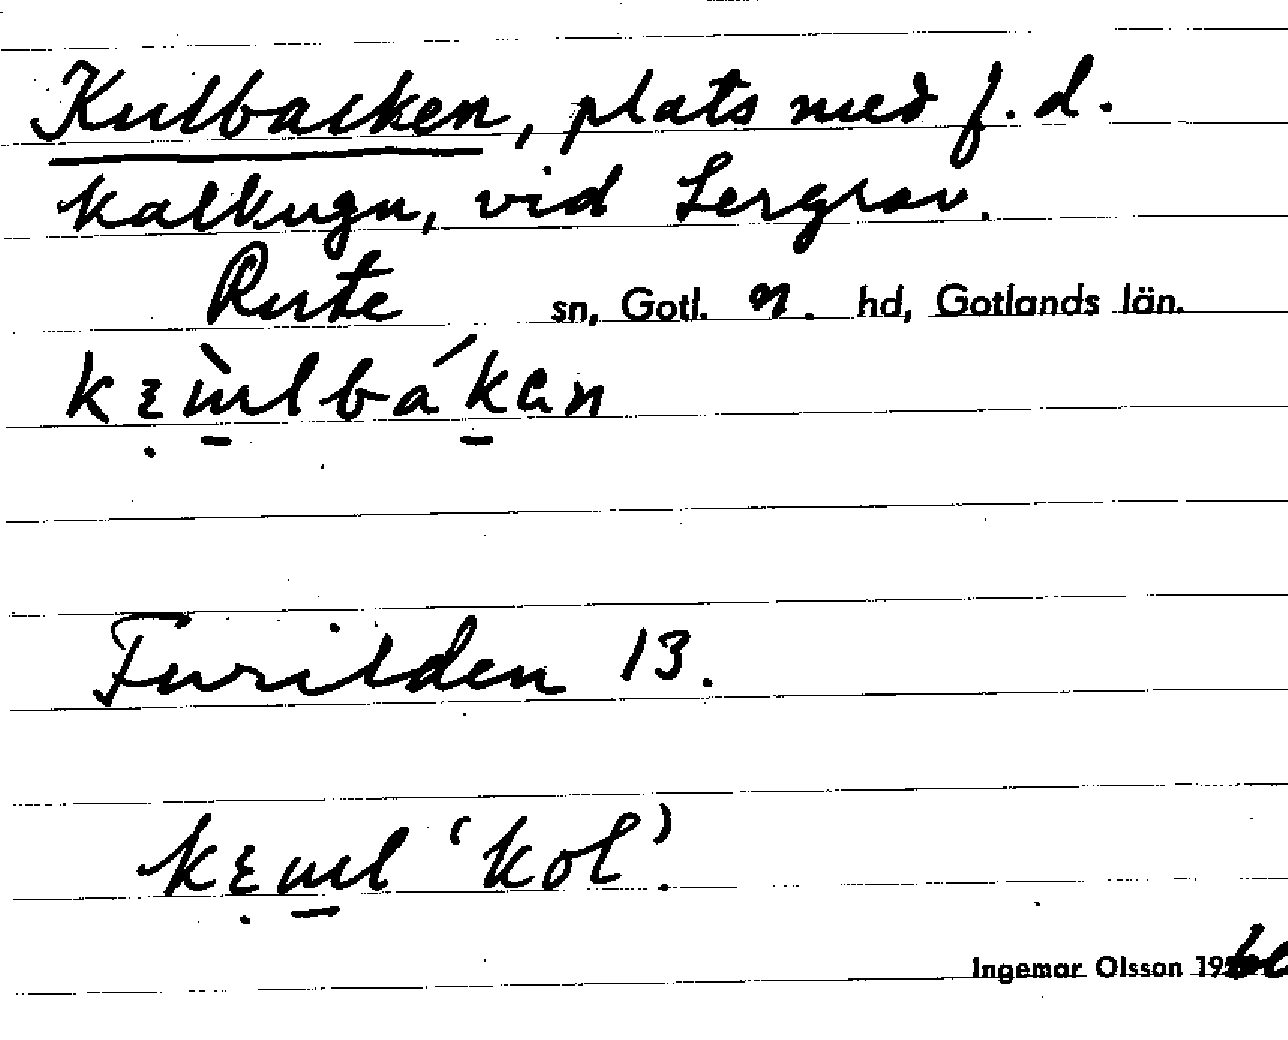 Kulbacken, plats med f.d.
kalkugn, vid Lergrav.
Rute sn, Gotl. n. hd, Gotlands län.
Furilden 13.
'kol'.
Ingemar Olsson 1960